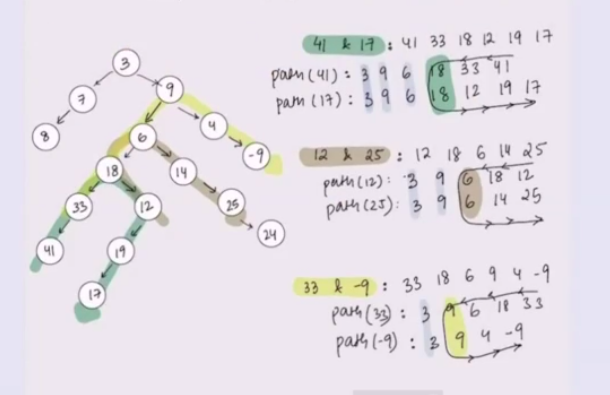 3
7
9
8
6
4
-9
18
14
33
12
25
24
41
19
17
41 & 17 : 41 33 18 12 19 17
path (41) : 3 9 6 18 33 41
path (17) : 3 9 6 18 12 19 17
12 & 25 : 12 18 6 14 25
path(12): 3 9 6 18 12
path(25): 3 9 6 14 25
33 & -9 : 33 18 6 9 4 -9
path(33) : 3 9 6 18 33
path(-9) : 3 9 4 -9